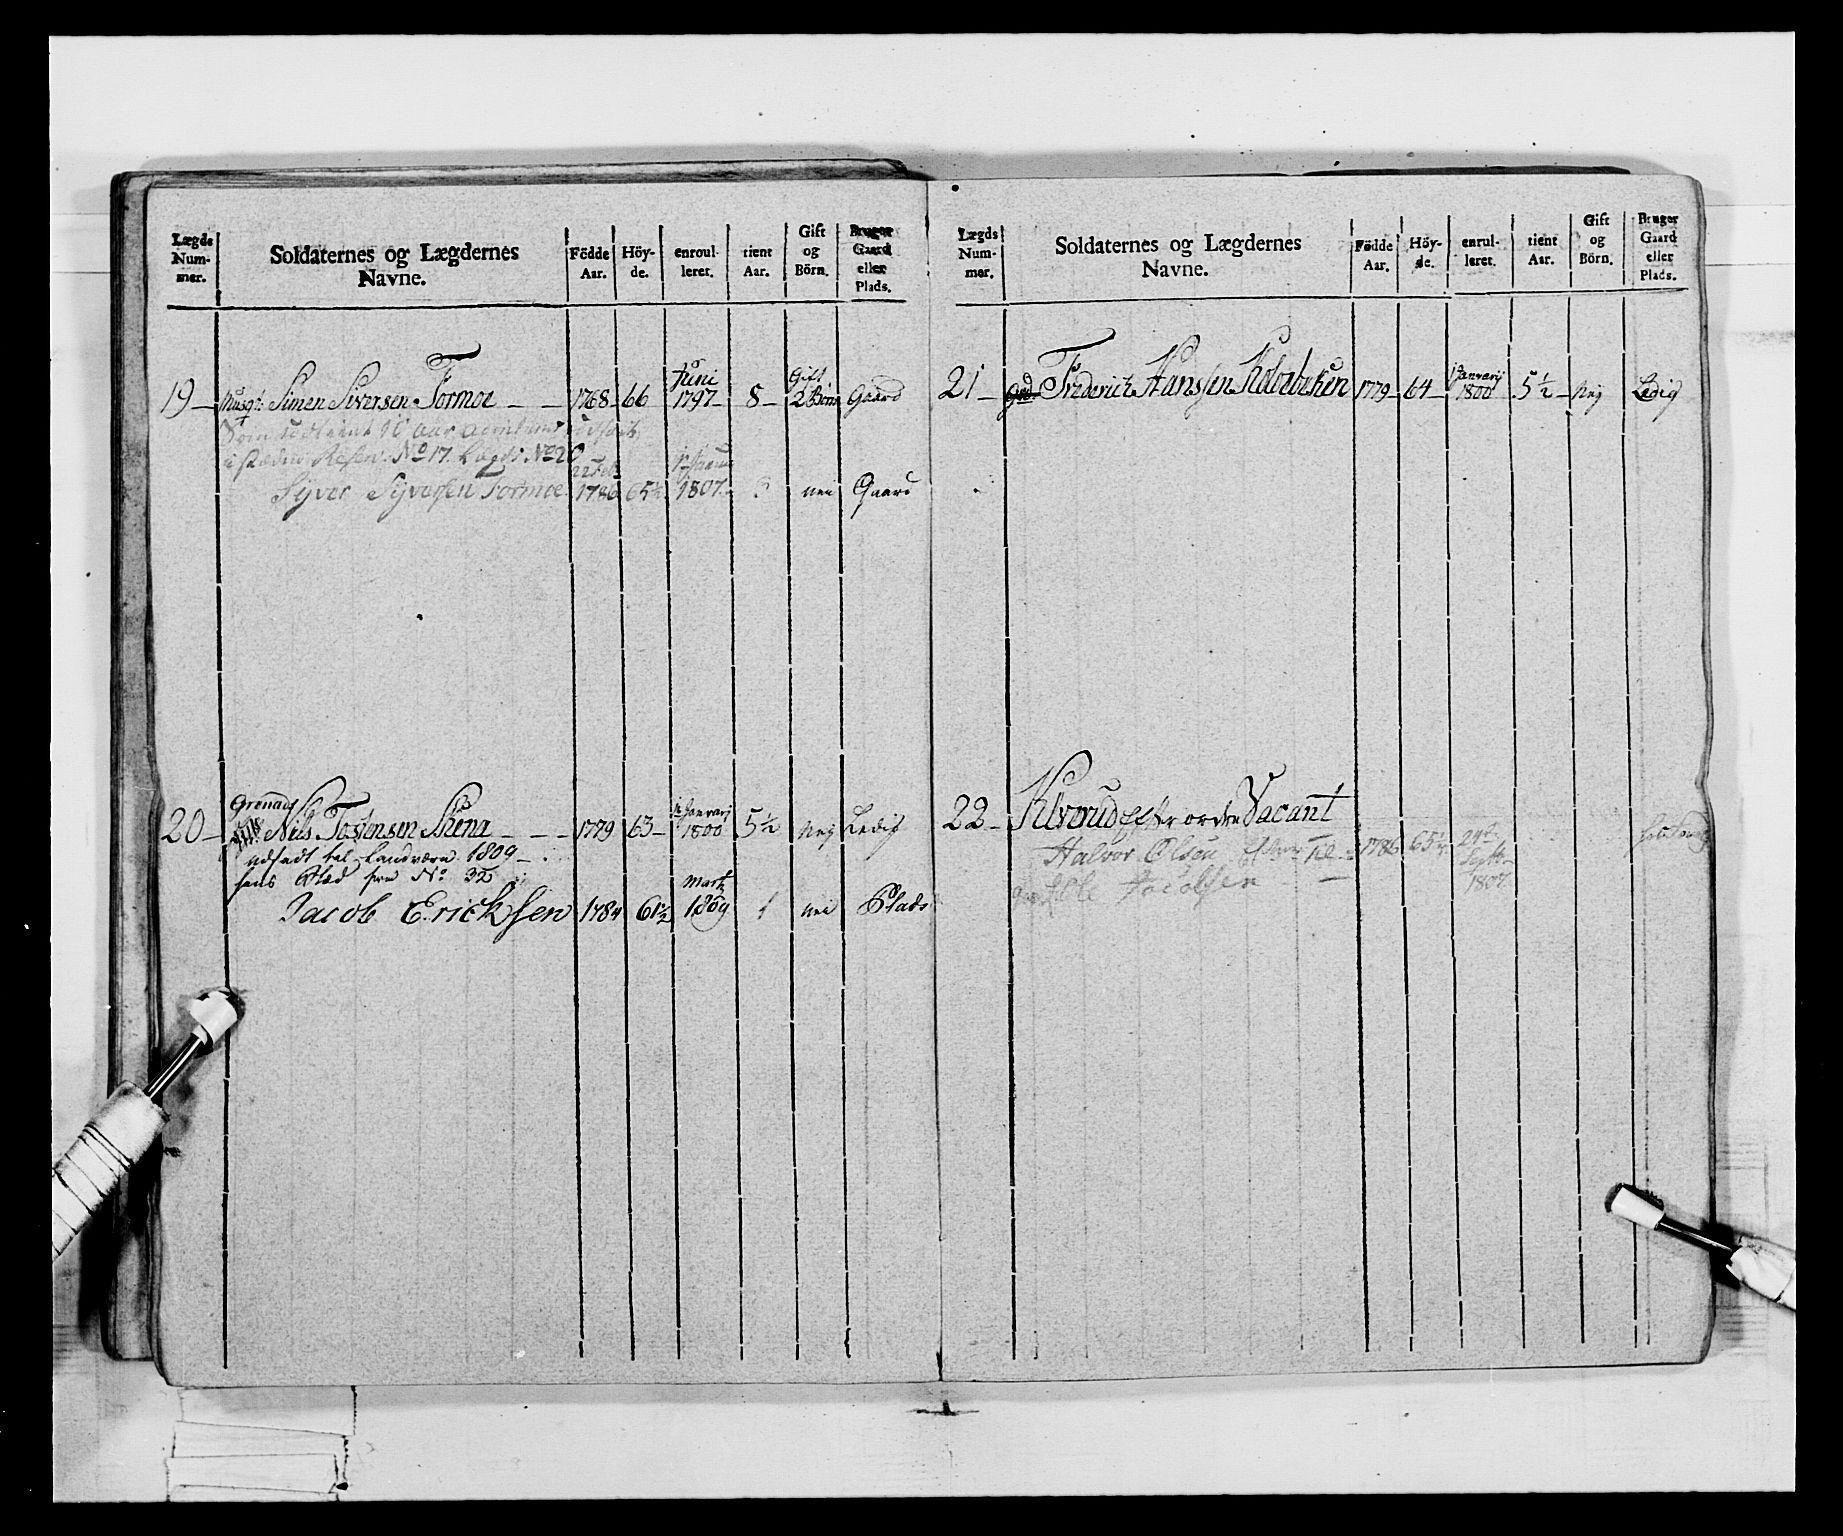 Lægds Num- mer.
Soldaternes og Lægdernes Navne.
Födde Aar.
Höy- de.
enroul- leret.
tient Aar.
Gift og Börn.
Bruger Gaard eller Plads.
19 Simen Siversen Tormoe 1768 66 Juni 1797 8 Gift 2 Börn Gaard
i stæden Reserv. No 17. Lægds No 20
Syver Syversen Tormoe 1786 65½ 1807 nei Gaard
20 Grenad
Nils Tostensen Skena 1779 63 Januarij 1800 5½ Nej Ledig
udsadt til Landværn 1809
hans Stæd fra No 32
Jacob Ericksen 1784 61½ Marti 1809 1 nei Plads
Lægds Num- mer.
Soldaternes og Lægdernes Navne.
Födde Aar.
Höy- de.
enrul- leret.
tient Aar.
Gift og Börn.
Bruger Gaard eller Plads.
21 Frederich Hanssen 1779 64 Januarij 1800 5½ Nej Ledig
22 efter ordre Vacant
Halvor Olsen 1786 65½ 24de Septb. 1807
Jacobsen